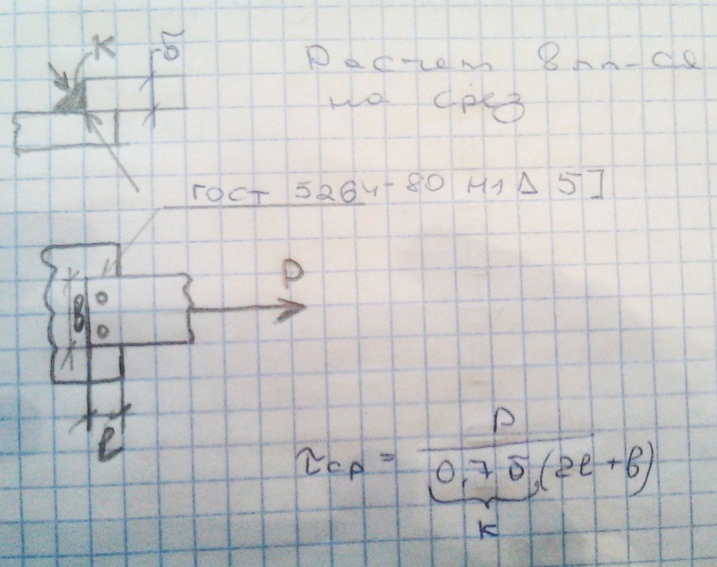 К
δ
Расчет вып-ся
на срез
ГОСТ 5264-80 Н1 Δ 5]
P
в
ℓ
τср = P / 0,7 δ (2ℓ + в)
К